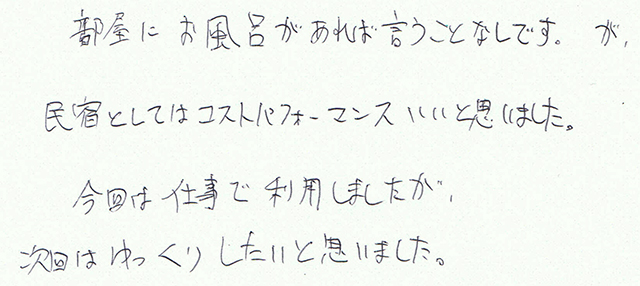 部屋にお風呂があれば言うことなしです。が、
民宿としてはコストパフォーマンスいいと思いました。
今回は仕事で利用しましたが、
次回はゆっくりしたいと思いました。